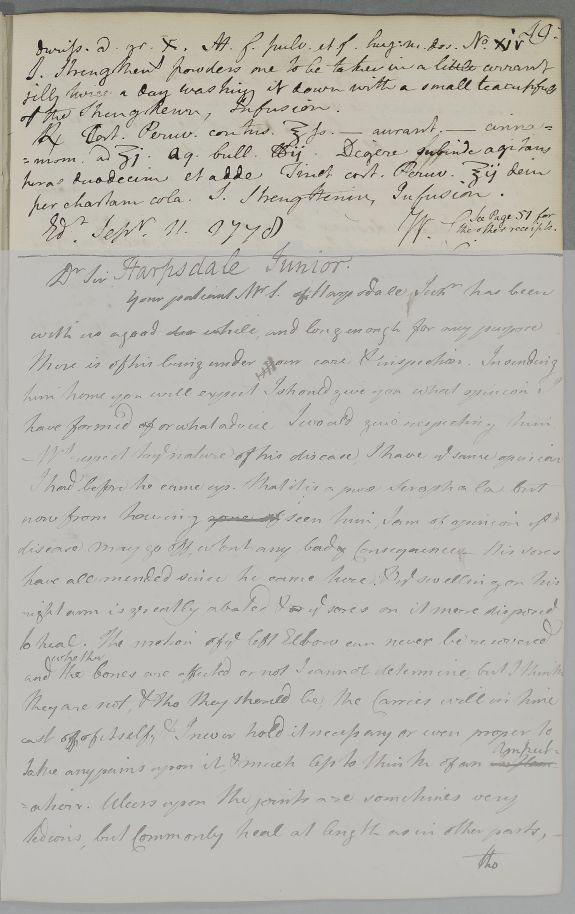 49.
divis. d. gr. X. M. f. pulv. et f. huj. m. dos. No. xiv
S. Strengthen.g powders one to be taken in a little currant
jilly twice a day washing it down with a small teacupfull
of the Strengthen.g Infusion.
℞ Cort. Peruv. contus. ℥ſs. — aurant. — cinna=
=mom. a ʒj. aq. bull. ℔ij. Digere subinde agitans
horas duodecim et adde Tinct. cort. Peruv. ℥ij dein
per chartam cola. S. Strengthening Infusion.
Ed.r Sept.r 11. 1778
See Page 51 for
the other receipts.
Harpsdale Junior.
Dr Sir
Your patient Mr S. of Harpsdale, Jun.r has been
with us a good while, and long enough for any purpose
there is of his being under our care & inspection. In sending
him home you will expect I should give you what opinion I
have formed of or what advice I would give respecting him
respect to ye nature of his disease, I have ye same opinion
I had before he came up. that it is a pure Scrophula but
now from having seen him, I am of opinion ye
disease may go off without any bad Consequences. His sores
have all mended since he came here, & ye swelling on his
right arm is greatly abated & ye sores on it more disposed
to heal. The motion of ye left Elbow can never be recovered
and whether the bones are affected or not I cannot determine, but I think
they are not, & tho they should be, the Carries will in time
cast off of itself, & I never hold it necessary or even proper to
take any pains upon it, & much less to think of an Amput=
=ation. Ulcers upon the joints are sometimes very
tedious, but Commonly heal at length as in other parts, –
tho